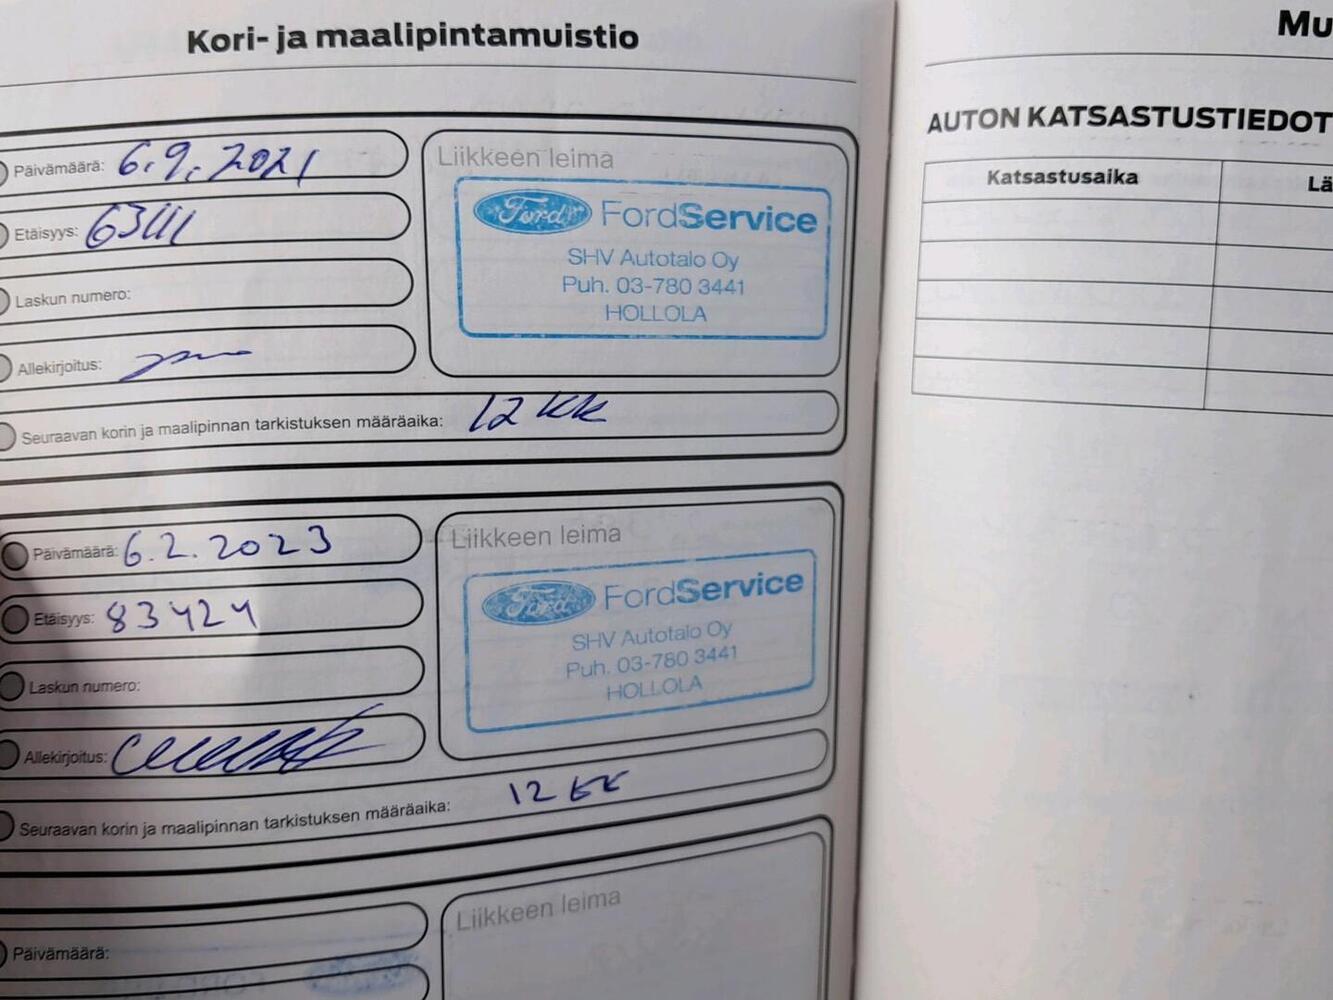 Kori- ja maalipintamuistio
Päivämäärä: 6.9.2021
Etäisyys: 63111
Laskun numero:
Allekirjoitus:
Liikkeen leima
Ford FordService
SHV Autotalo Oy
Puh. 03-780 3441
HOLLOLA
Seuraavan korin ja maalipinnan tarkistuksen määräaika: 12 kk
Päivämäärä: 6.2.2023
Etäisyys: 83424
Laskun numero:
Allekirjoitus:
Liikkeen leima
Ford FordService
SHV Autotalo Oy
Puh. 03-780 3441
HOLLOLA
Seuraavan korin ja maalipinnan tarkistuksen määräaika: 12 kk
Päivämäärä:
Liikkeen leima
Mu
AUTON KATSASTUSTIEDOT
Katsastusaika
Lä